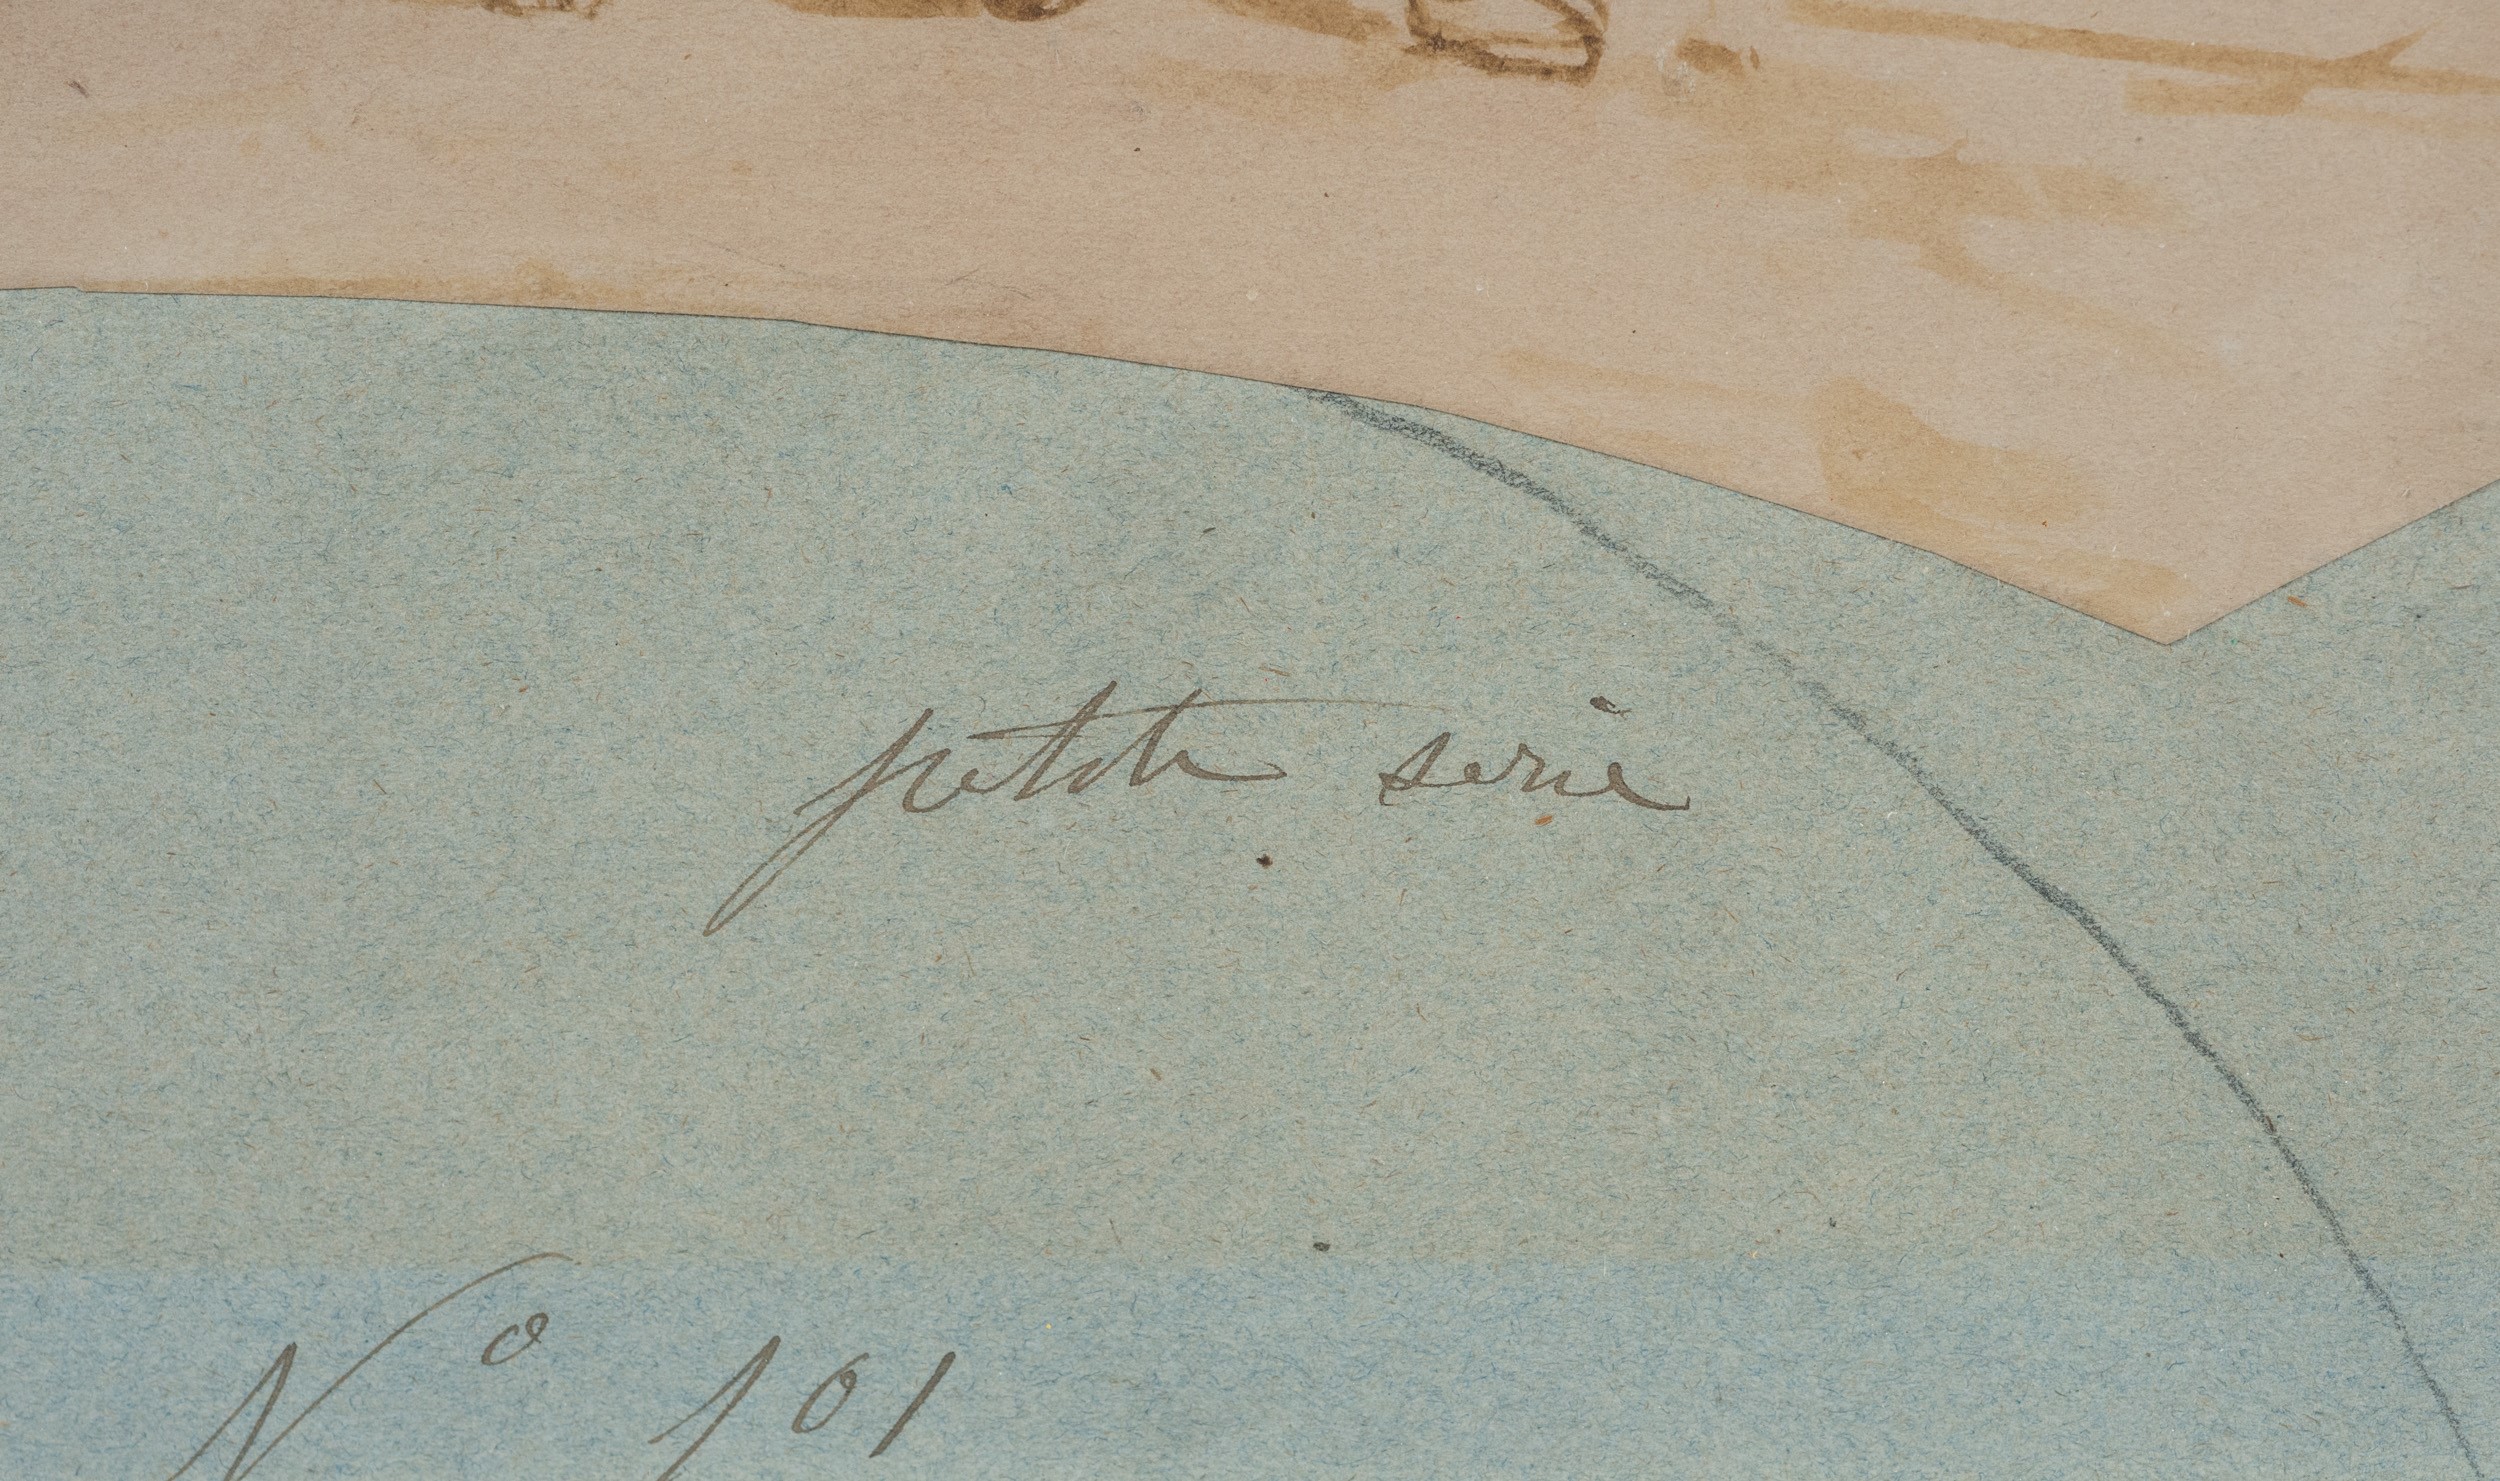 petite serie
N° 101